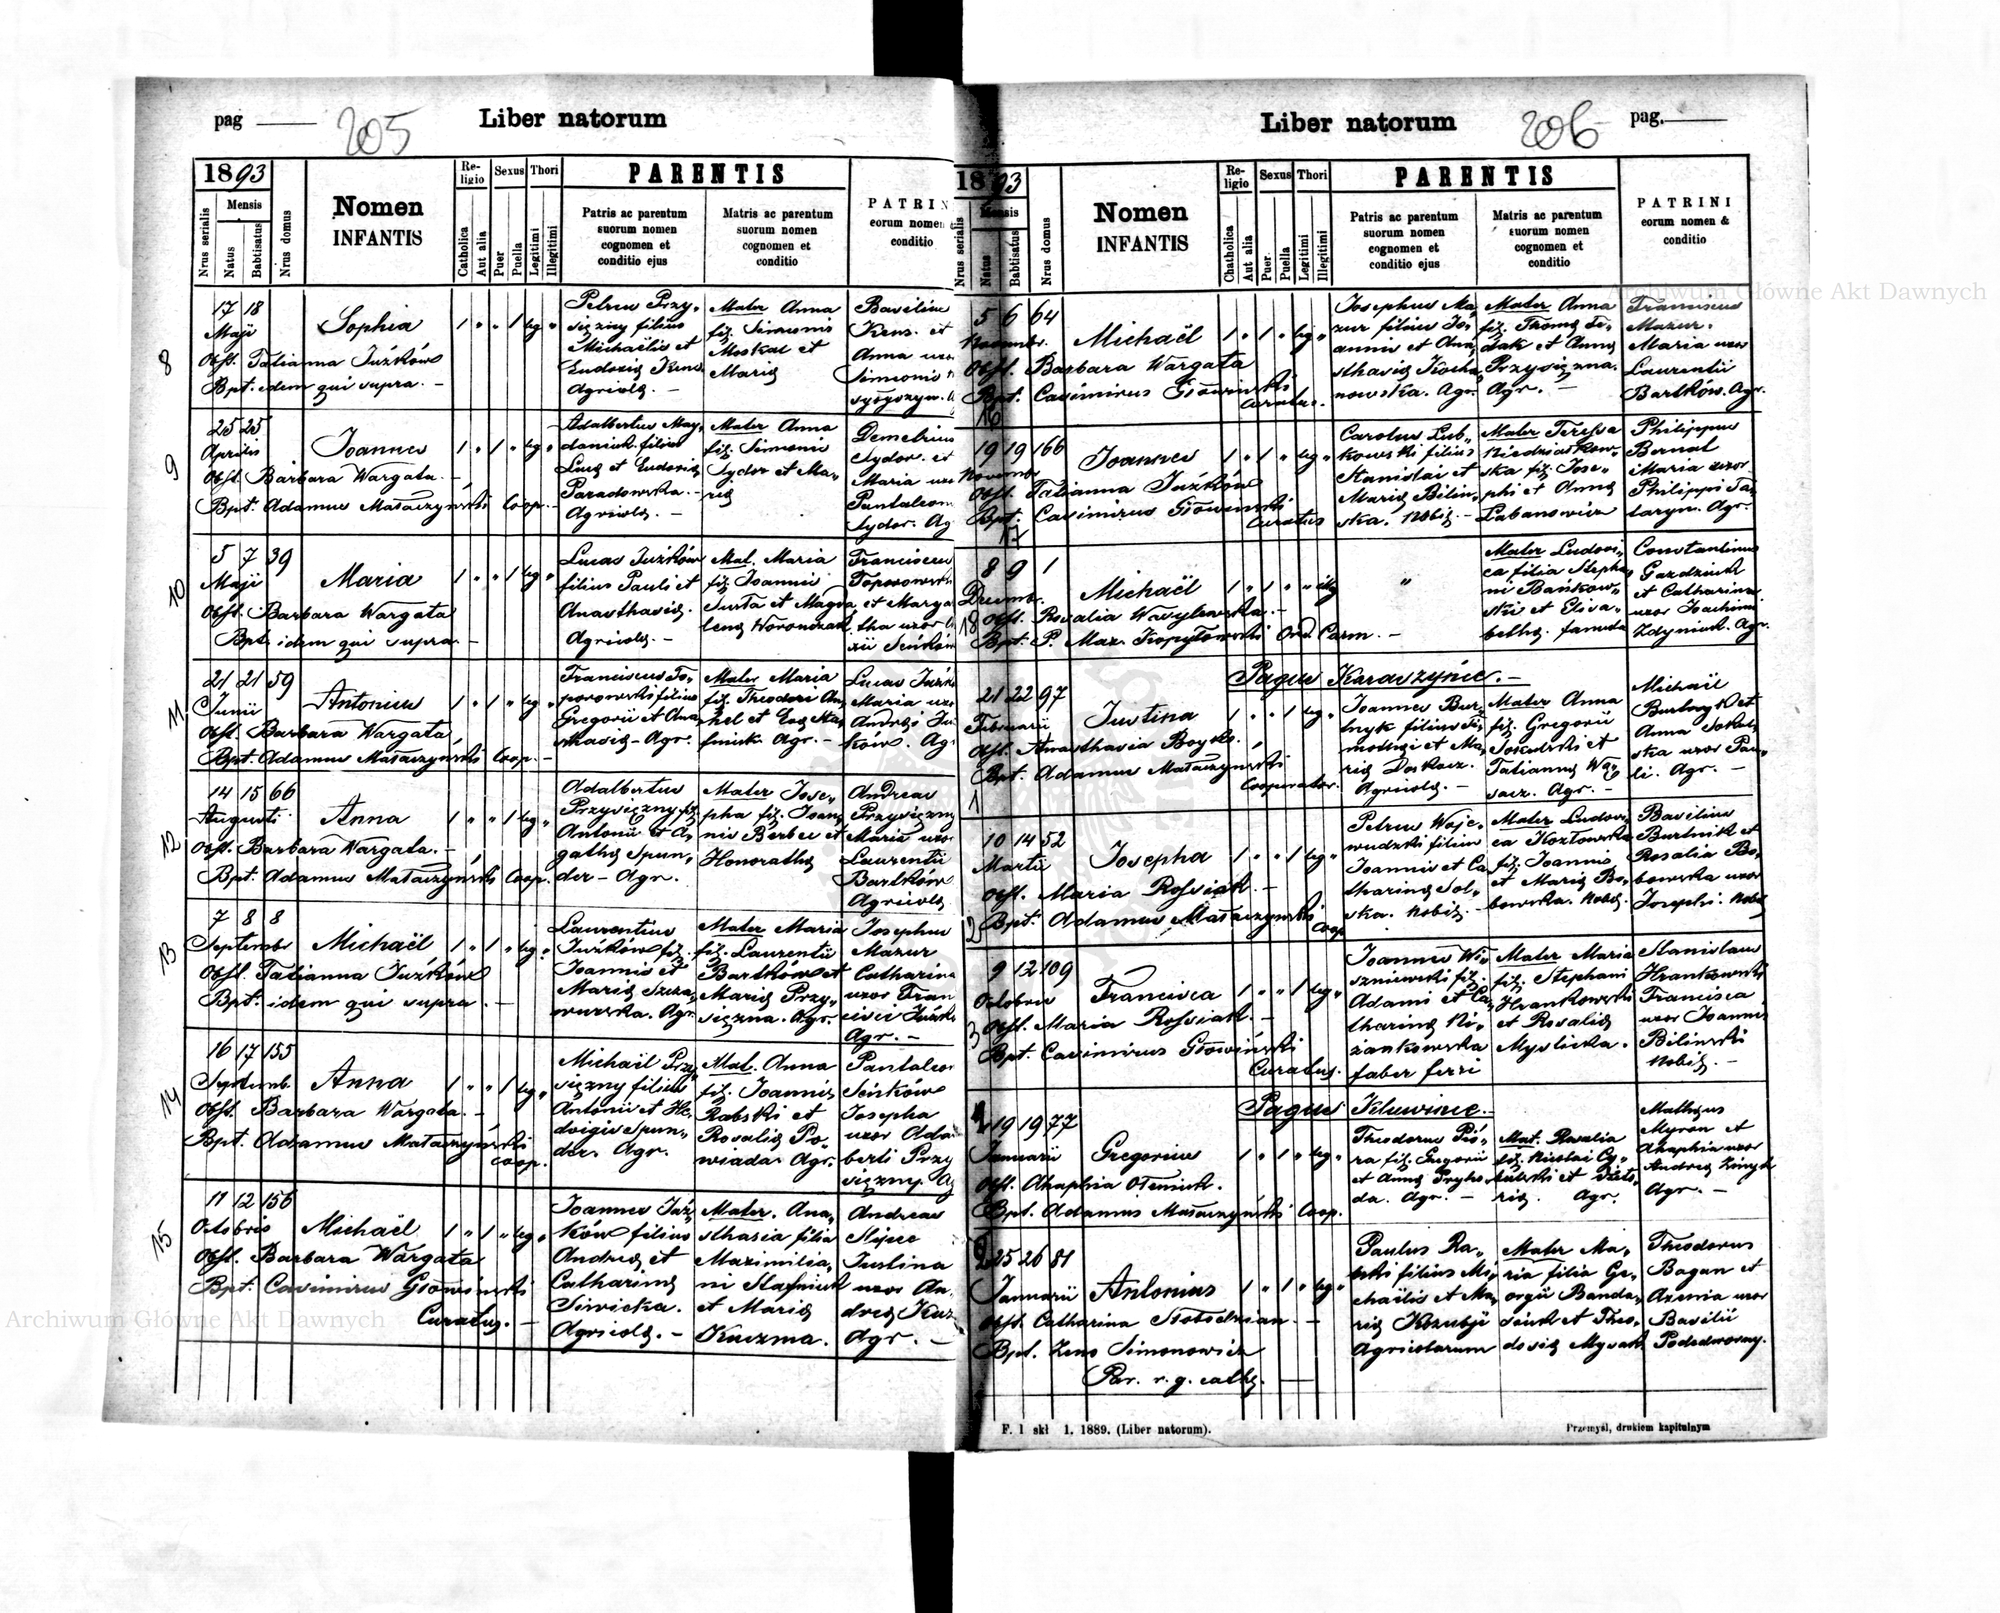 pag
205
Liber natorum
1893
Mensis
Nrus serialis
Natus
Babtisatus
Nrus domus
Nomen
INFANTIS
Re-
ligio
Catholica
Aut alia
Sexus
Puer
Puella
Thori
Legitimi
Illegitimi
PARENTIS
Patris ac parentum
suorum nomen
cognomen et
conditio ejus
Matris ac parentum
suorum nomen
cognomen et
conditio
PATRIN
eorum nomen
conditio
8
17 18
Maji
Sophia
1 " " 1 leg "
Obst. Tatianna Juźków
Bpt. idem qui supra. -
Petrus Przy-
siężny filius
Michaëlis et
Agricola. -
Mater Anna
fil. Simeonis
Moskal et
Maria
Basilius
et
Anna uxor
Simeonis
9
25 25
Aprilis
Joannes
1 " 1 " leg "
Obst. Barbara Wargata. -
Bpt. Adamus Małaczyński Coop. -
Adalbertus May-
daniuk filius
Luca et Eudoxia
Paradowska. -
Agricola. -
Mater Anna
fil. Simeonis
Sydor et Ma-
ria
Demetrius
Sydor. et
Maria uxor
Pantaleon
Sydor. Ag
10
5 7 39
Maji
Maria
1 " " 1 leg "
Obst. Barbara Wargata
Bpt. idem qui supra -
Lucas Juźków
filius Pauli et
Anasthasia.
Agricola. -
Mat. Maria
fil. Joannis
Susta et Magda
lena Woronczak
Franciscus
Toporowski
et Marga
tha uxor
11
21 21 59
Junii
Antonius
1 " 1 " leg "
Obst. Barbara Wargata
Bpt. Adamus Małaczyński Coop. -
Franciscus To-
porowski filius
Gregorii et Ana-
sthasia - Agr.
Mater Maria
fil. Theodori
Agr. -
Lucas Juźk
Maria uxor
Andreas Ju
ków. Ag
12
14 15 66
Augusti
Anna
1 " " 1 leg "
Obst. Barbara Wargata. -
Bpt. Adamus Małaczyński Coop.
Adalbertus
Przysiężny fil.
Antonii et A-
gatha Spun-
der - Agr.
Mater Jose-
pha fil. Joan-
nis Berbec et
Honoratha
Andreas
Przysiężny
Maria uxor
Laurentii
Bartków
Agricola
13
7 8 8
Septembr
Michaël
1 " 1 " leg "
Obst. Tatianna Juźków
Bpt. idem qui supra. -
Laurentius
Juźków fil.
Joannis et
Maria
Agr.
Mater Maria
fil. Laurentii
Bartków et
Maria Przy-
siężna. Agr.
Josephus
Mazur
Catharina
uxor Fran
cisci Juźk
Agr. -
14
16 17 155
Septemb.
Anna
1 " " 1 leg "
Obst. Barbara Wargata. -
Bpt. Adamus Małaczyński
Coop.
Michaël Przy-
siężny filius
Antonii et He-
dvigis Spun-
der. Agr.
Mat. Anna
fil. Joannis
Rabski et
Rosalia Po-
wiada. Agr.
Pantaleon
Sieńków
Josepha
uxor Adal
berti Przy
siężny. Ag
15
11 12 156
Octobris
Michaël
1 " 1 " leg "
Obst. Barbara Wargata
Bpt. Casimirus Głowiński
Curatus. -
Joannes Juź-
ków filius
Andrea et
Catharina
Siwicka.
Agricola. -
Mater. Ana-
sthasia filia
Maximilia-
ni Stafniuk
et Maria
Kuczma.
Andreas
Justina
uxor An-
drea Kuz
Agr. -
Liber natorum
206
pag.
1893
Mensis
Nrus serialis
Natus
Babtisatus
Nrus domus
Nomen
INFANTIS
Re-
ligio
Chatholica
Aut alia
Sexus
Puer.
Puella
Thori
Legitimi
Illegitimi
PARENTIS
Patris ac parentum
suorum nomen
cognomen et
conditio ejus
Matris ac parentum
suorum nomen
cognomen et
conditio
PATRINI
eorum nomen &
conditio
5 6 64
Novembr.
Michaël
1 " 1 " leg "
Obst. Barbara Wargata
Bpt. Casimirus Głowiński
Curatus.
16
Josephus Ma-
zur filius Jo-
annis et Ana-
sthasia Kocha-
nowska. Agr.
Mater Anna
fil. Thoma
et Anna
Przysiężna.
Agr. -
Franciscus
Mazur.
Maria uxor
Laurentii
Bartków. Agr.
19 19 166
Novembr
Joannes
1 " 1 " leg "
Obst. Tatianna Juźków
Bpt. Casimirus Głowiński
Curatus
17
Carolus Lub-
kowski filius
Stanislai et
Maria Bilin-
ska. Nobil. -
Mater Teressa
Niedzwiakow-
ska fil. Jose-
phi et Anna
Łabanowicz
Philippus
Bernat
Maria uxor
Philippi Ta-
taryn. Agr.
8 9 1
Decembr.
Michaël
1 " 1 " " illeg
Obst. Rosalia Wasylewska. -
18
Bpt. P. Max. Kopytowski Ord. Carm. -
"
Mater Ludovi-
ca filia Stepha-
ni Bańkow-
ski et Elisa-
betha. famula
Constantinus
Gazdziuk
et Catharina
uxor Joachimi
Zdyniuk. Agr.
Pagus Karaczyńce. -
21 22 97
Februarii
Justina
1 " " 1 leg "
Obst. Anasthasia Boyko.
Bpt. Adamus Małaczyński
Cooperator.
1
Joannes Bur-
tnyk filius Ti-
mothei et Ma-
ria
Agricola. -
Mater Anna
fil. Gregorii
Sokulski et
Tatianna
Agr. -
Michaël
Burtnyk et
Anna Sokul-
ska uxor Pau-
li. Agr. -
10 14 52
Martii
Josepha
1 " " 1 leg "
Obst. Maria Rossiak. -
2
Bpt. Adamus Małaczyński
Coop
Petrus Woje-
wudzki filius
Joannis et Ca
tharina Sol-
ska. Nobil. -
Mater Ludovi-
ca Kozłowska
fil. Joannis
et Maria Bo-
bowska. Nobil.
Basilius
Burtnik et
Rosalia Bo-
bowska uxor
Josephi. Nobil
9 12 109
Octobris
Francisca
1 " " 1 leg "
3
Obst. Maria Rossiak. -
Bpt. Casimirus Głowiński
Curatus.
Joannes Wi-
szniewski fil.
Adami et Ca-
tharina Ni-
ziankowska
faber ferri
Mater Maria
fil. Stephani
Hrankowski
et Rosalia
Myslicka.
Stanislaus
Hrankowski
Francisca
uxor Joannis
Bilinski
Nobil. -
Pagus Kluwińce. -
1
19 19 77
Januarii
Gregorius
1 " 1 " leg "
Obst. Ahaphia Oleniuk.
Bpt. Adamus Małaczyński Coop.
Theodorus Pió-
ra fil. Gregorii
et Anna Pryho-
da. Agr. -
Mat. Rosalia
fil. Nicolai Cy-
bulski et Victo-
ria. Agr.
Matheus
Myron et
Ahaphia uxor
Andrea
Agr. -
2
25 26 81
Januarii
Antonius
1 " 1 " leg "
Obst. Catharina Słobodzian. -
Bpt. Zeno Simonowicz
Par. r. g. cath. -
Paulus Ra-
filius Mi-
chaëlis et Ma-
ria Kozubji
Agricolarum
Mater Ma-
ria filia Ge-
orgii Banda-
siuk et Theo-
dosia Mysak
Theodorus
Bagan et
Axenia uxor
Basilii
Pododworny.
F. 1 skł 1. 1889. (Liber natorum).
Przemyśl, drukiem kapitulnym
Archiwum Główne Akt Dawnych
Archiwum Główne Akt Dawnych